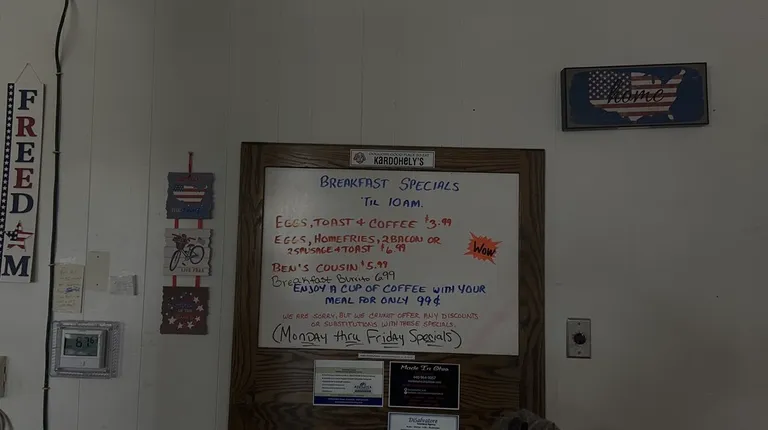 FREEDOM
home
KARDOHELY'S
BREAKFAST SPECIALS
'TIL 10AM.
EGGS, TOAST & COFFEE $3.99
EGGS, HOMEFRIES, 2 BACON OR
2 SAUSAGE & TOAST $6.99
WOW
BEN'S COUSIN $5.99
Breakfast Burrito 6.99
ENJOY A CUP OF COFFEE WITH YOUR
MEAL FOR ONLY 99¢
WE ARE SORRY, BUT WE CANNOT OFFER ANY DISCOUNTS
OR SUBSTITUTIONS WITH THESE SPECIALS.
(MONDAY thru FRIDAY Specials)
Made In Ohio